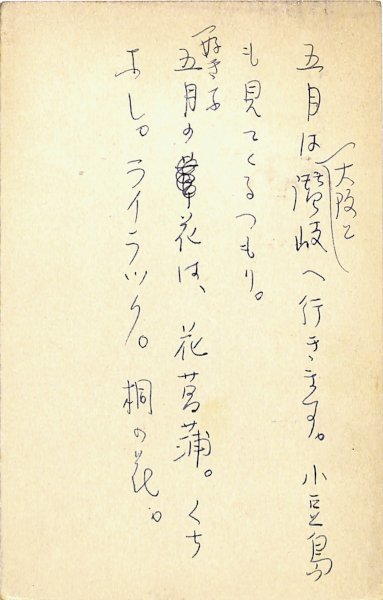 五月は大阪と讃岐へ行きます。小豆島
も見てくるつもり。
好きな五月の花は、花菖蒲。くち
なし。ライラック。桐の花。